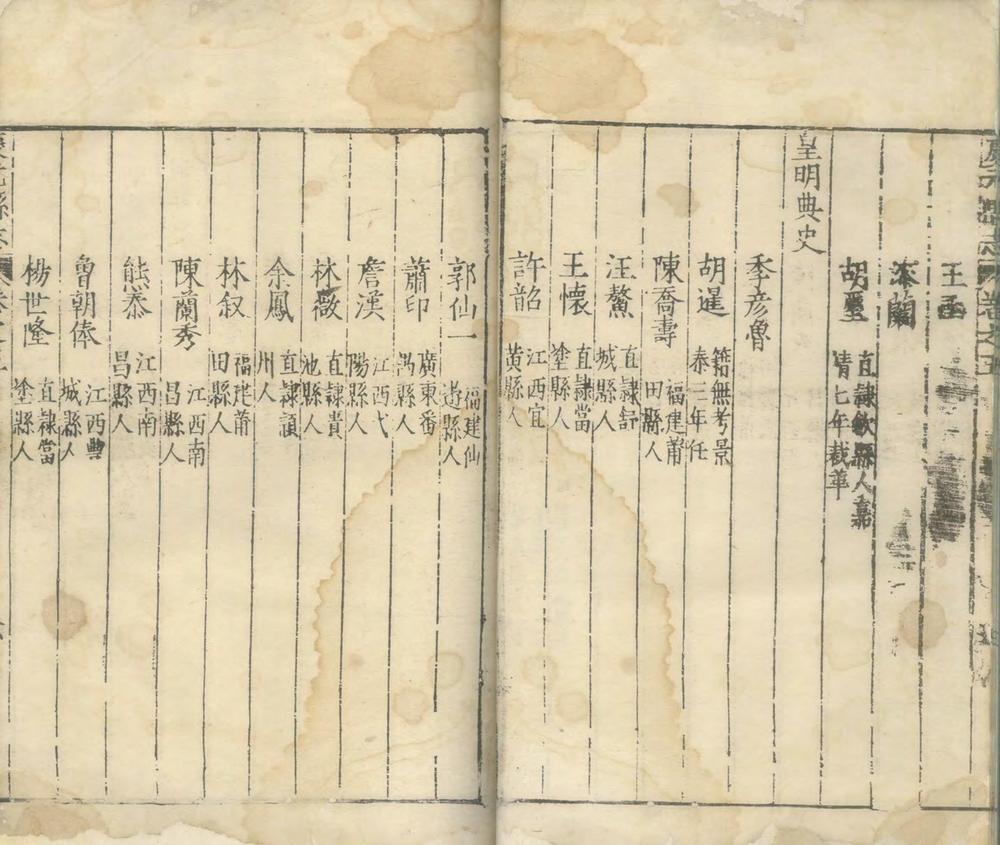 慶元縣志 卷之五
王
蘭
胡璽 直隸歙縣人嘉
靖七年裁革
皇明典史
季彥魯
胡暹 籍無考景
泰三年任
陳喬壽 福建莆
田縣人
汪鰲 直隸舒
城縣人
王懷 直隸當
塗縣人
許韶 江西宜
黃縣人
郭仙一 福建仙
遊縣人
蕭印 廣東番
禺縣人
詹漢 江西弋
陽縣人
林敬 直隸貴
池縣人
余鳳 直隸潁
州人
林叙 福建莆
田縣人
陳蘭秀 江西南
昌縣人
熊泰 江西南
昌縣人
魯朝俸 江西豐
城縣人
楊世隆 直隸當
塗縣人